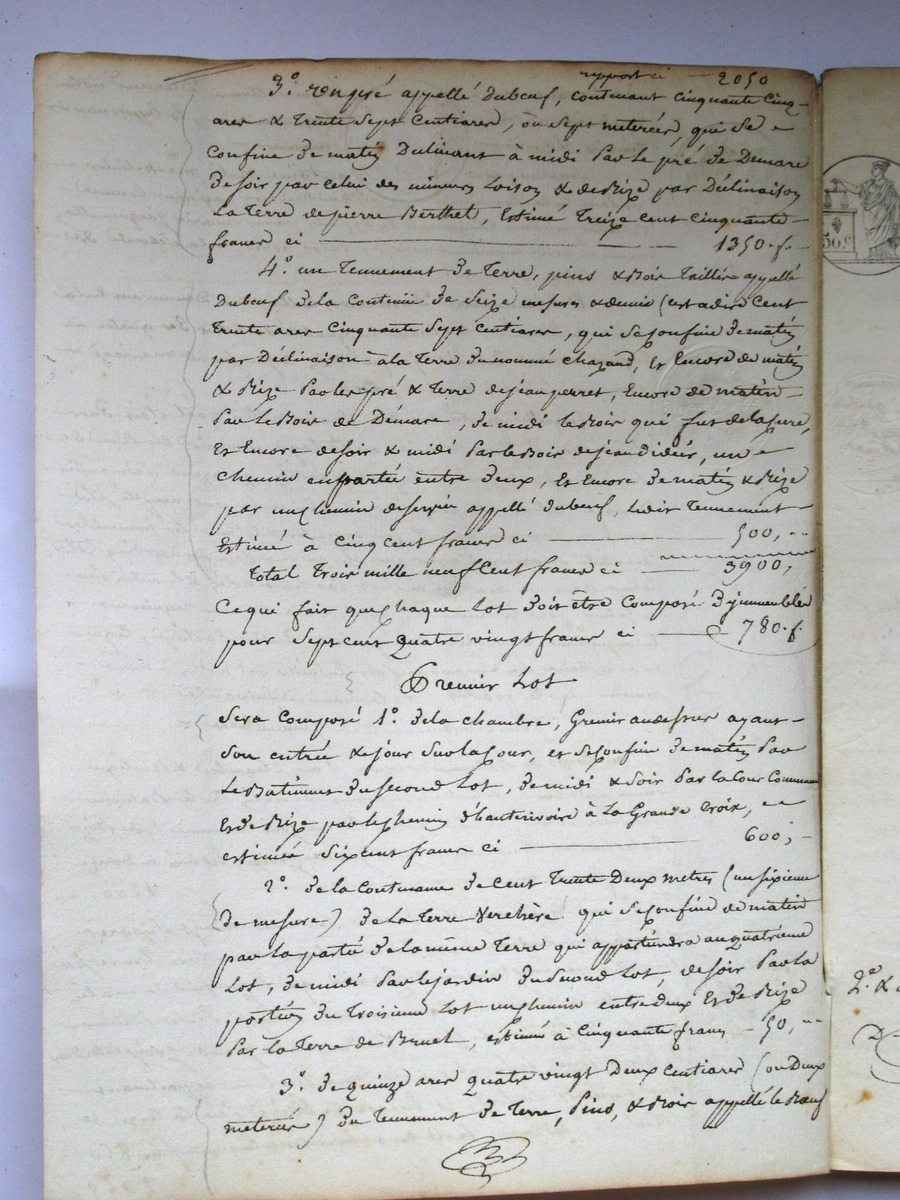 rapport ci — 2050
3°. un pré appellé Duboeuf, contenant cinquante cinq
ares & trente sept centiares, ou sept meterées, qui se
confine de matin Dulinant à midi par le pré de Demare
de soir par celui des mineurs Loison & de Bize par Déclinaison
la terre de pierre Berthet, Estimé Treize cent cinquante
francs ci — 1350. f.
4°. un Tennement de Terre, pins & Bois Taillis appellé
Duboeuf de la contenüe de Seize mesures & demie (c'est adire cent
trente ares cinquante sept centiares, qui se confine de matin
par Déclinaison à la terre du nommé Chazaud, Et Encore de matin
& Bize par les pré & terre de jean perret, Encore de matin
par le Bois de Démare, de midi le Bois qui fut de la cure,
Et Encore de soir & midi par le Bois de jean didier, un
chemin en partie entre deux, Et Encore de matin & Bize
par un chemin de servie appellé duboeuf, ledit Tennement
Estimé à cinq cent francs ci — 500,
Total Trois mille neuf cent francs ci — 3900,
Ce qui fait que chaque lot doit être composé D'immeubles
pour sept cent quatre vingt francs ci — 780. f.
Premier Lot
Sera composé 1°. de la chambre, Grenier au dessus ayant
son entrée & jour sur la cour, et se confine de matin par
le Bâtiment du second lot, de midi & soir par la cour commune
Et de Bize par le chemin d'hauterivoire à La Grande Croix,
estimée six cent francs ci — 600,
2°. de la contenue de cent trente deux metres (un sixieme
de mesure) de la terre Verchère qui se confine de matin
par la partie de la même terre qui appartiendra au quatrieme
Lot, de midi par le jardin du second lot, de soir par la
portion du troisieme lot un chemin entre deux Et de Bize
par la terre de Brunel, estimée à cinquante francs — 50,
3°. de quinze ares quatre vingt deux centiares (ou Deux
meterées) du Tennement de Terre, Pins, & Bois appellé le Boeuf
50 c.
2°. &